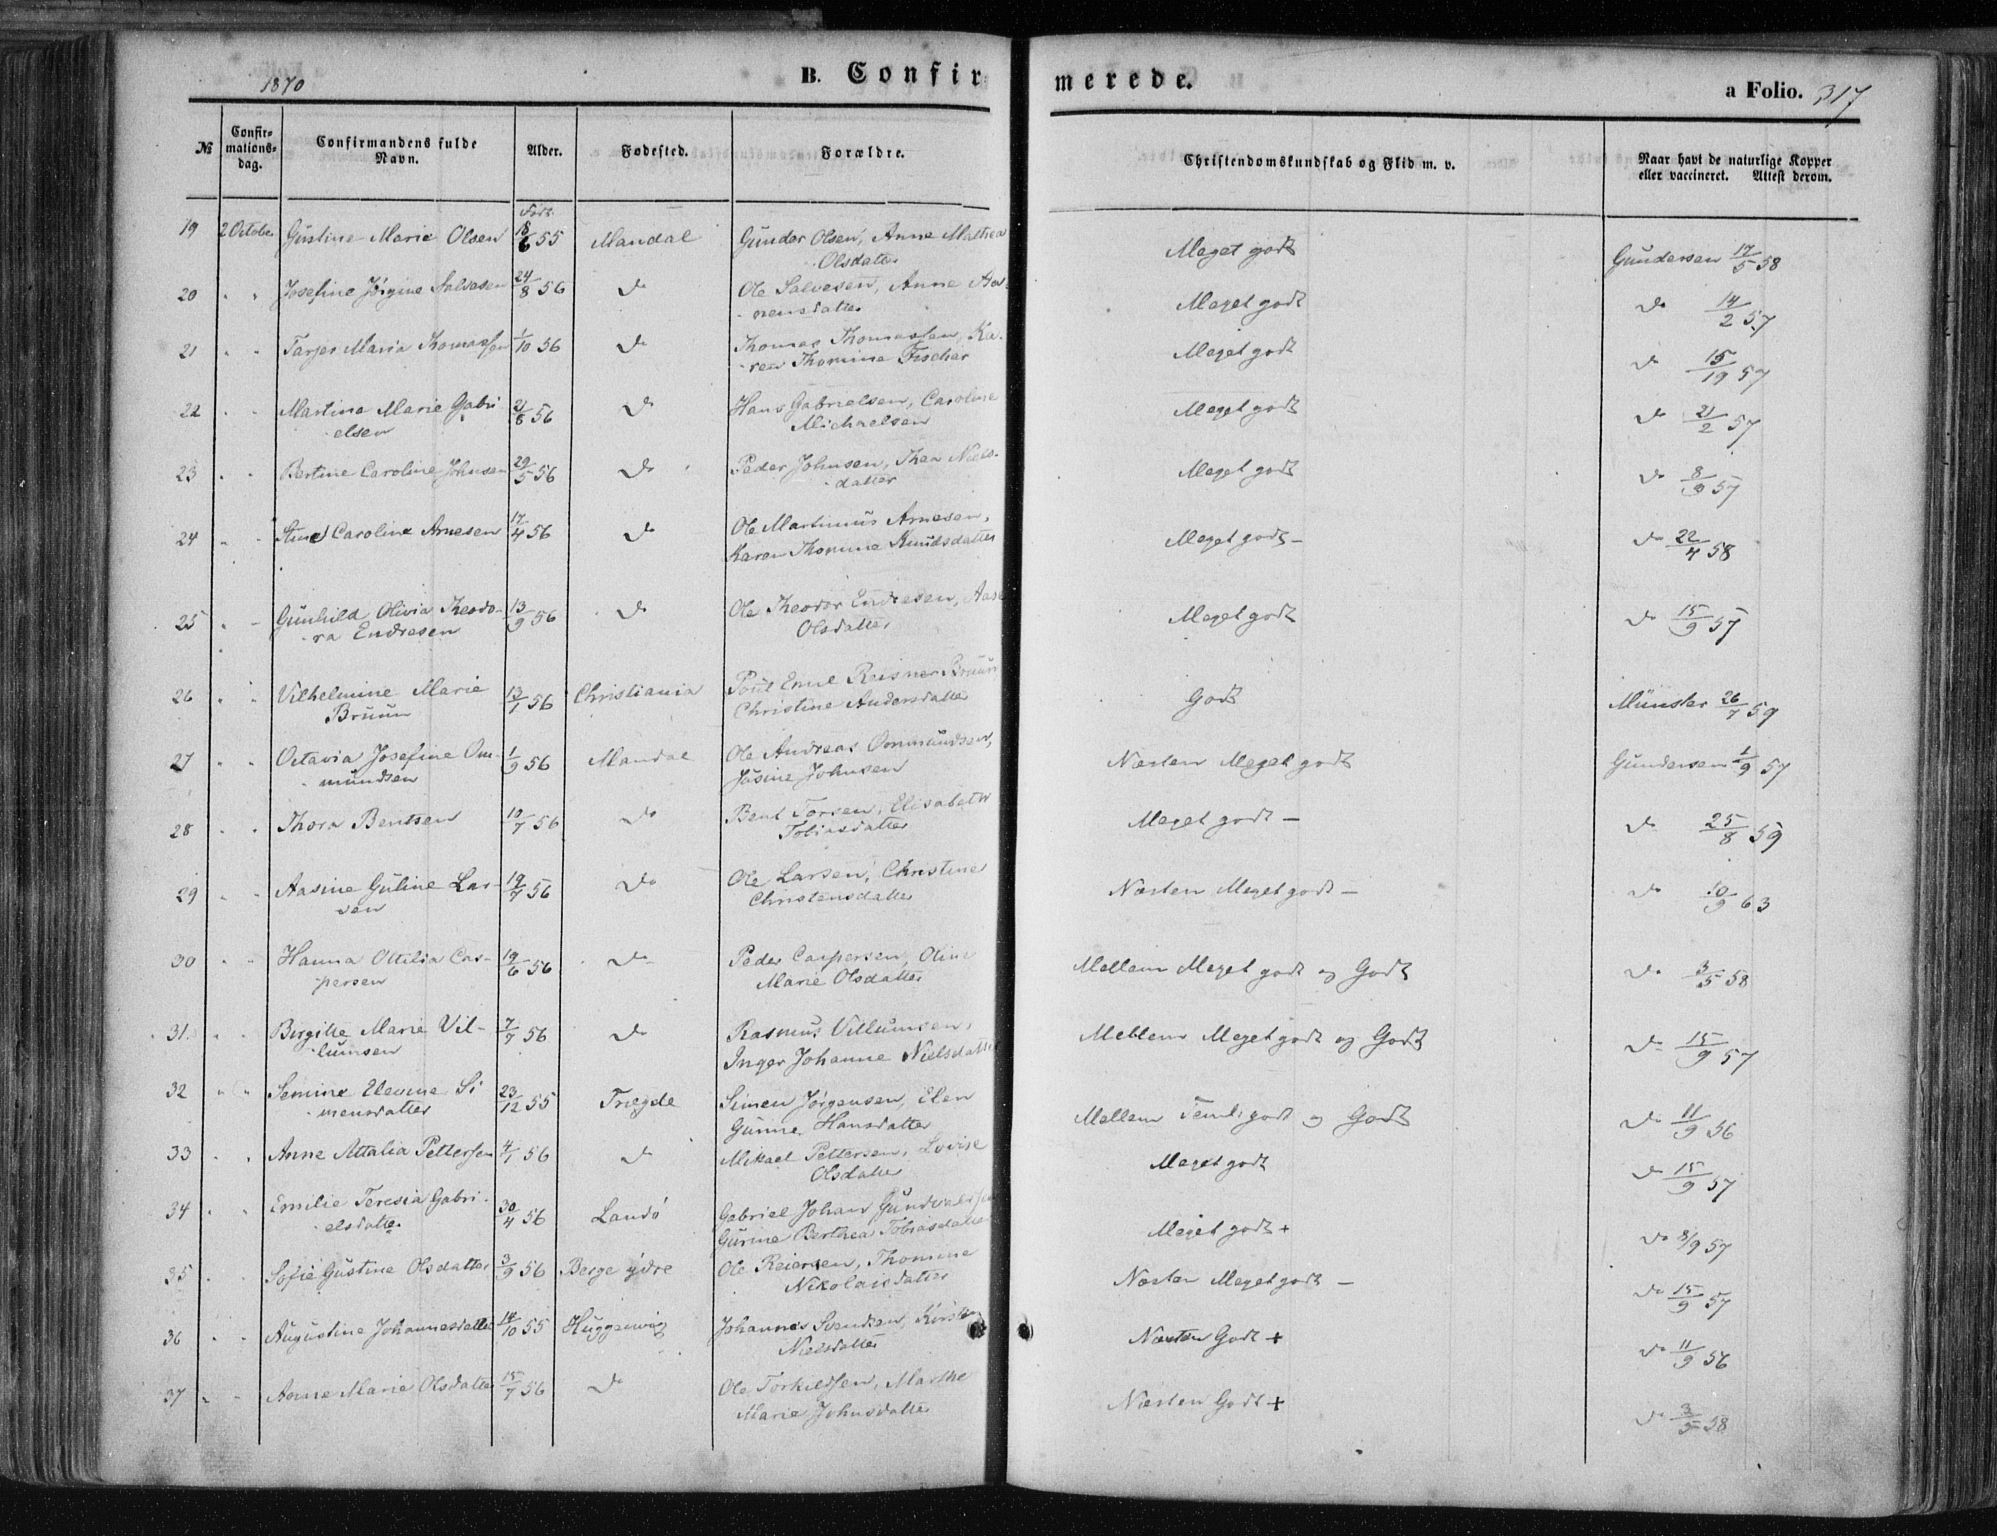 1870
B. Confirmerede.
a Folio. 317
№
Confirmations-dag.
Confirmandens fulde Navn.
Alder.
Fødested.
Forældre.
Christendomskundskab og Flid m. v.
Naar havt de naturlige Kopper eller vaccineret. Attest derom.
19 2 October Gustine Marie Olsen 18/6 55 Mandal Gunder Olsen, Anne Mathea Meget godt Gundersen 17/5 58
Olsdatter
20 " " Josefine Jörgine Salvesen 24/8 56 Do Ole Salvesen, Anne Aa- Meget godt Do 14/2 57
nensdatter
21 " " Maria Thomassen 1/10 56 Do Thomas Thomassen, Ka- Meget godt Do 15/19 57
ren Thomine Fischer
22 " " Martina Marie Gabri- 21/8 56 Do Hans Gabrielsen, Caroline Meget godt Do 21/2 57
elsen Michaelsen
23 " " Bertine Caroline Johnsen 29/5 56 Do Peder Johnsen, Thea Niels- Meget godt Do 8/9 57
datter
24 " " Caroline Arnesen 17/4 56 Do Ole Martinius Arnesen, Meget godt - Do 22/4 58
Karen Thomine Knudsdatter
25 " " Gunhild Olivia Theodo- 13/9 56 Do Ole Theodor Endresen, Aase Meget godt Do 15/9 57
ra Endresen Olsdatter
26 " " Vilhelmine Marie 13/1 56 Christiania Poul Emil Reisner Bruun Godt Münster 26/7 59
Bruun Christine Andersdatter
27 " " Octavia Josefine Om- 1/9 56 Mandal Ole Andreas Ommundsen, Næsten Meget godt Gundersen 1/9 57
mundsen Jusine Johnsen
28 " " Thora Bentsen 10/7 56 Do Bent Torsen, Elisabeth Meget godt - Do 25/8 59
Tobiasdatter
29 " " Aasine Guline Lar- 19/7 56 Do Ole Larsen, Christine Næsten Meget godt - Do 10/9 63
sen Christensdatter
30 " " Hanna Ottilia Cas- 19/6 56 Do Peder Caspersen, Oline Mellem Meget godt og Godt Do 3/5 58
persen Marie Olsdatter
31. " " Birgitte Marie Vil- 7/7 56 Do Rasmus Villumsen, Mellem Meget godt og Godt Do 15/9 57
lumsen Inger Johanne Nielsdatter
32 " " Semine Elevine Si- 23/12 55 Trægde Simen Jörgensen, Elen Mellem Temli godt og Godt Do 11/9 56
mensdatter Gunne Hansdatter
33 " " Anne Attalia Pettersen 4/1 56 Do Mikael Pettersen, Lovise Meget godt Do 15/9 57
Olsdatter
34 " " Emilie Teresia Gabri- 30/4 56 Landö Gabriel Johan Meget godt + Do 8/9 57
elsdatter Gurine Berthea Tobiasdatter
35 " " Sofie Gustine Olsdatter 3/9 56 Berge ydre Ole Reiersen, Thomine Næsten Meget godt - Do 15/9 57
Nikolaisdatter
36 " " Augustine Johannesdatter 14/10 55 Huggenvig Johannes Svendsen, Næsten Godt + Do 11/9 56
Nielsdatter
37 " " Anne Marie Olsdatter 15/7 56 Do Ole Torkildsen, Marthe Næsten Godt + Do 3/5 58
Marie Johnsdatter